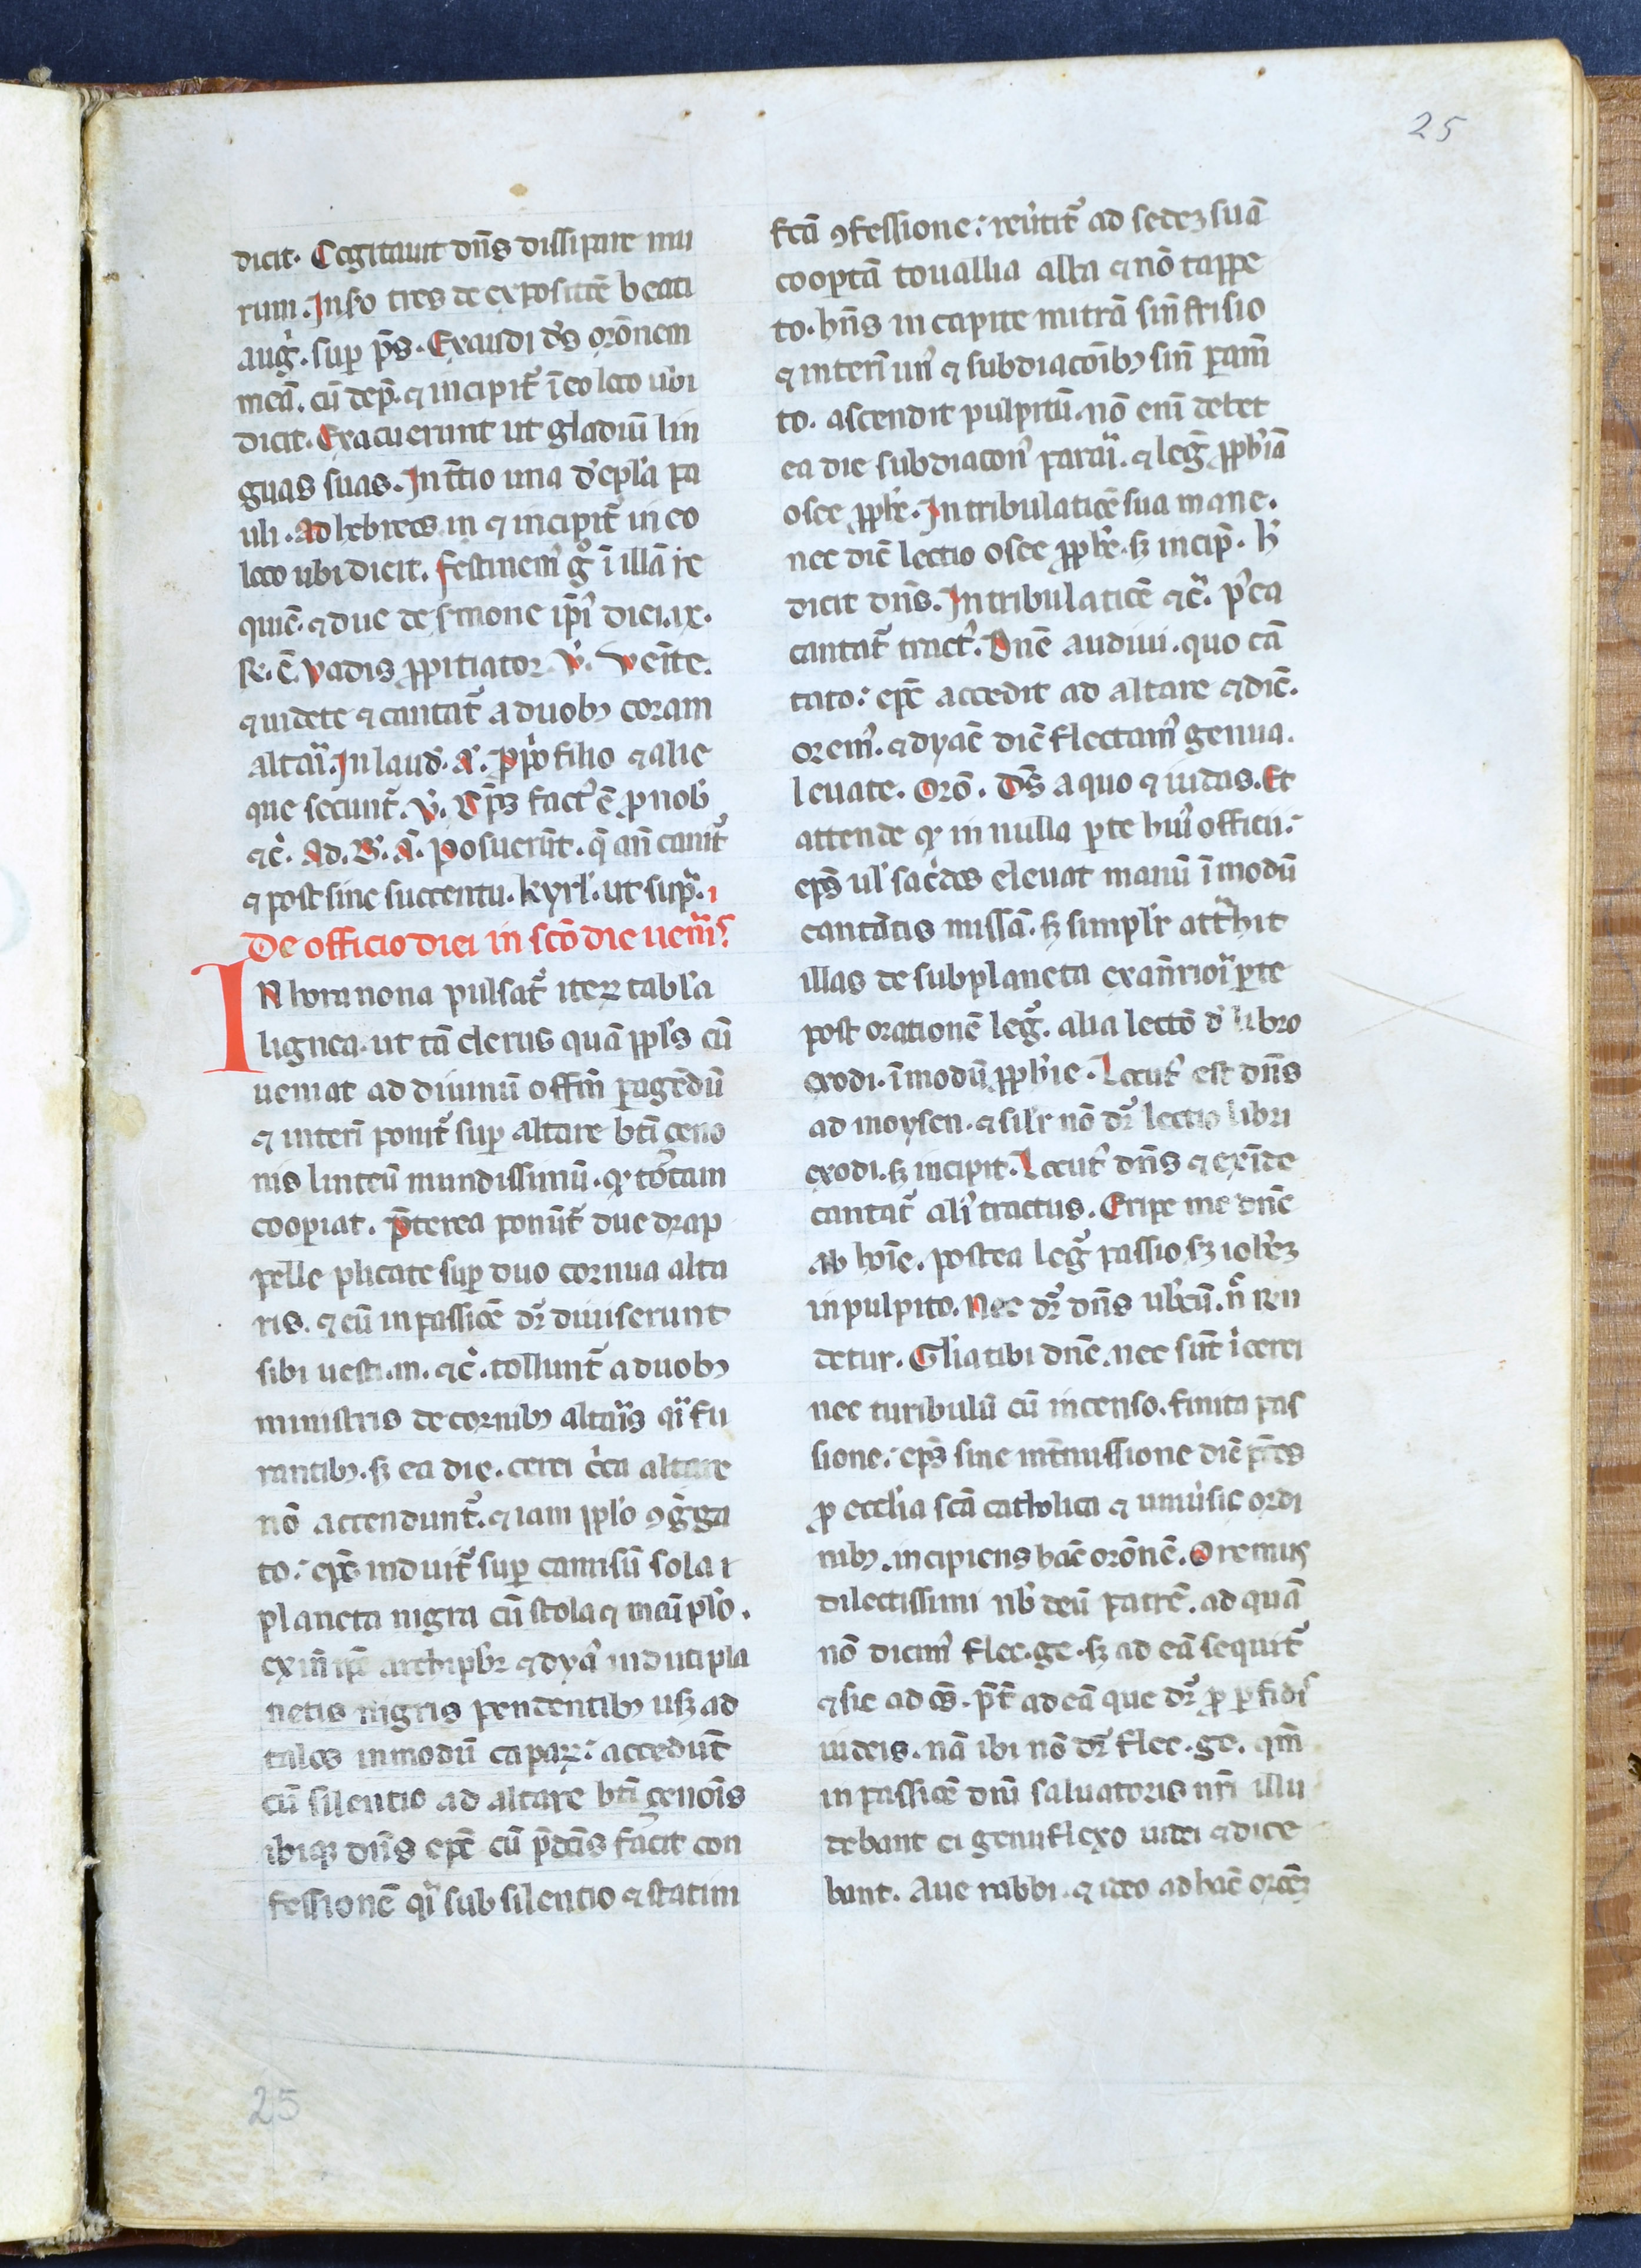 25
dicit. Cogitauit dn̄s dissipare mu
rum. In s̄o tres de expositiōe beati
aug̾. sup̱ p̄s. Exaudi d̄s orōnem
meā. cū dep̄. ⁊ incipit᷑ ī eo loco ubi
dicit. Exacuerunt ut gladiū lin
guas suas. In t̄tio una d̾ epl̾a pa
uli. Ad hebreos in ⁊ incipit᷑ in eo
loco ubi dicit. Festinem᷒ gͦ ī illā re
quiē. ⁊ due de s̾mone ip̄i᷒ diei. ix.
R̵. ē. Vadis ꝓpitiator. V̾. Venīte.
⁊ uidete ⁊ cantat᷑ a duobꝫ coram
altaͥ. In laud̾. a̾. Prop̾o filio ⁊ alie
que secunt᷑. V̾. Xp̄s fact᷒ ē ꝓ nob̾
⁊c̾. Ad. B̾. A̾. Posuerūt. q̄ an̄ canit᷑
⁊ post sine succentu. kyrl̾. ut supᷓ.
De officio diei in scō die uen̄is.
IN hora nona pulsat᷑ iteꝝ tabl̾a
lignea. ut tā clerus quā ppl̾s cū
ueniat ad diuinū offm̄ ꝑagēdū
⁊ interī ponit᷑ sup̱ altare bt̄i çeno
nis linteū mundissimū. qͥ totā tam
coop̱iat. p̄terea ponūt᷑ due drap
pelle plicate sup̱ duo cornua alta
ris. ⁊ cū in passiōe dr̄ diuiserunt
sibi uestim. ⁊c̾. tollunt᷑ a duobꝫ
ministris de cornibꝫ altaͥs qͣi fu
rantibꝫ. sꝫ ea die. cerei c̾ca altare
nō accendunt᷑. ⁊ iam ppl̾o ꝯg̾ga
to: ep̄c induit᷑ sup̱ camisū sola
planeta nigra cū stola ⁊ manipl̾o.
exin̄ ip̄e archipb̾r ⁊ dyaͨ induti pla
netis nigris pendentibꝫ usꝫ ad
talos in modū capaꝝ: accedūt
cū silentio ad altare bt̄i çenōis
ibiqꝫ dn̄s ep̄c cū p̄dc̄is facit con
fessionē qͣi sub silentio ⁊ statim
fc̄ā ꝯfessione: reu̾tit᷑ ad sedeꝫ suā
coop̱tā touallia alba ⁊ nō tappe
to. hn̄s in capite mitrā sin̄ frisio
⁊ interī un᷒ ⁊ subdiaconibꝫ sin̄ ꝑam̄
to. ascendit pulpitū. nō enī debet
ea die subdiacon᷒ paraͥ. ⁊ leg̾ ꝓph̾iā
osee ꝓph̾e. In tribulatiōe sua mane.
nec dic̄ lectio osee ꝓph̾e. sꝫ incip̄. h̾
dicit dn̄s. In tribulatiōe ⁊c̾. p᷒ea
cantat᷑ tract᷒. Dn̄e audiui. quo cā
tato: ep̄c accedit ad altare ⁊ dic̄.
orem᷒. ⁊ dyac̄ dic̄ flectam᷒ genua.
leuate. Orō. D̄s a quo ⁊ iudas. Et
attende qͥ in nulla p̱te hui᷒ officii:
ep̄s ul̾ sac̾dos eleuat manū ī modū
cantātis missā. sꝫ simpl̾r att̾hit
illas de sub planeta ex an̄rioͥ p̱te
post orationē leg᷑. alia lectō d̾ libro
exodi. ī modū ꝓph̾ie. Locut᷒ est dn̄s
ad moysen. ⁊ sil̾r nō dr̄ lectio libri
exodi. sꝫ incipit. Locut᷒ dn̄s ⁊ exīde
cantat᷑ ali᷒ tractus. Eripe me dn̄e
ab hoīe. postea leg᷑ passio sꝫ ioh̾eꝫ
in pulpito. Nec dr̄ dn̄s uob̾cū. n̄ rn̄
detur. Gl̾ia tibi dn̄e. nec sūt ī cerei
nec turibulū cū incenso. finita pas
sione: ep̄s sine int̄missione dic̄ p̄ces
ꝓ eccl̾ia scā catholica ⁊ uniu̾sis ordi
nibꝫ. incipiens hāc orōnē. Oremus
dilectissimi nb̾ deū patrē. ad quā
nō dicim᷒ flec. ge. sꝫ ad eā sequit᷑
⁊ sic ad oēs. p̄t̾ ad eā que dr̄ ꝓ p̱fidis
iudeis. nā ibi nō dr̄ flec. ge. qm̄
in passiōe dn̄i saluatoris nr̄i illu
debant ei genuflexo iudei ⁊ dice
bant. Aue rabbi. ⁊ ideo ad hāc orōeꝫ
25